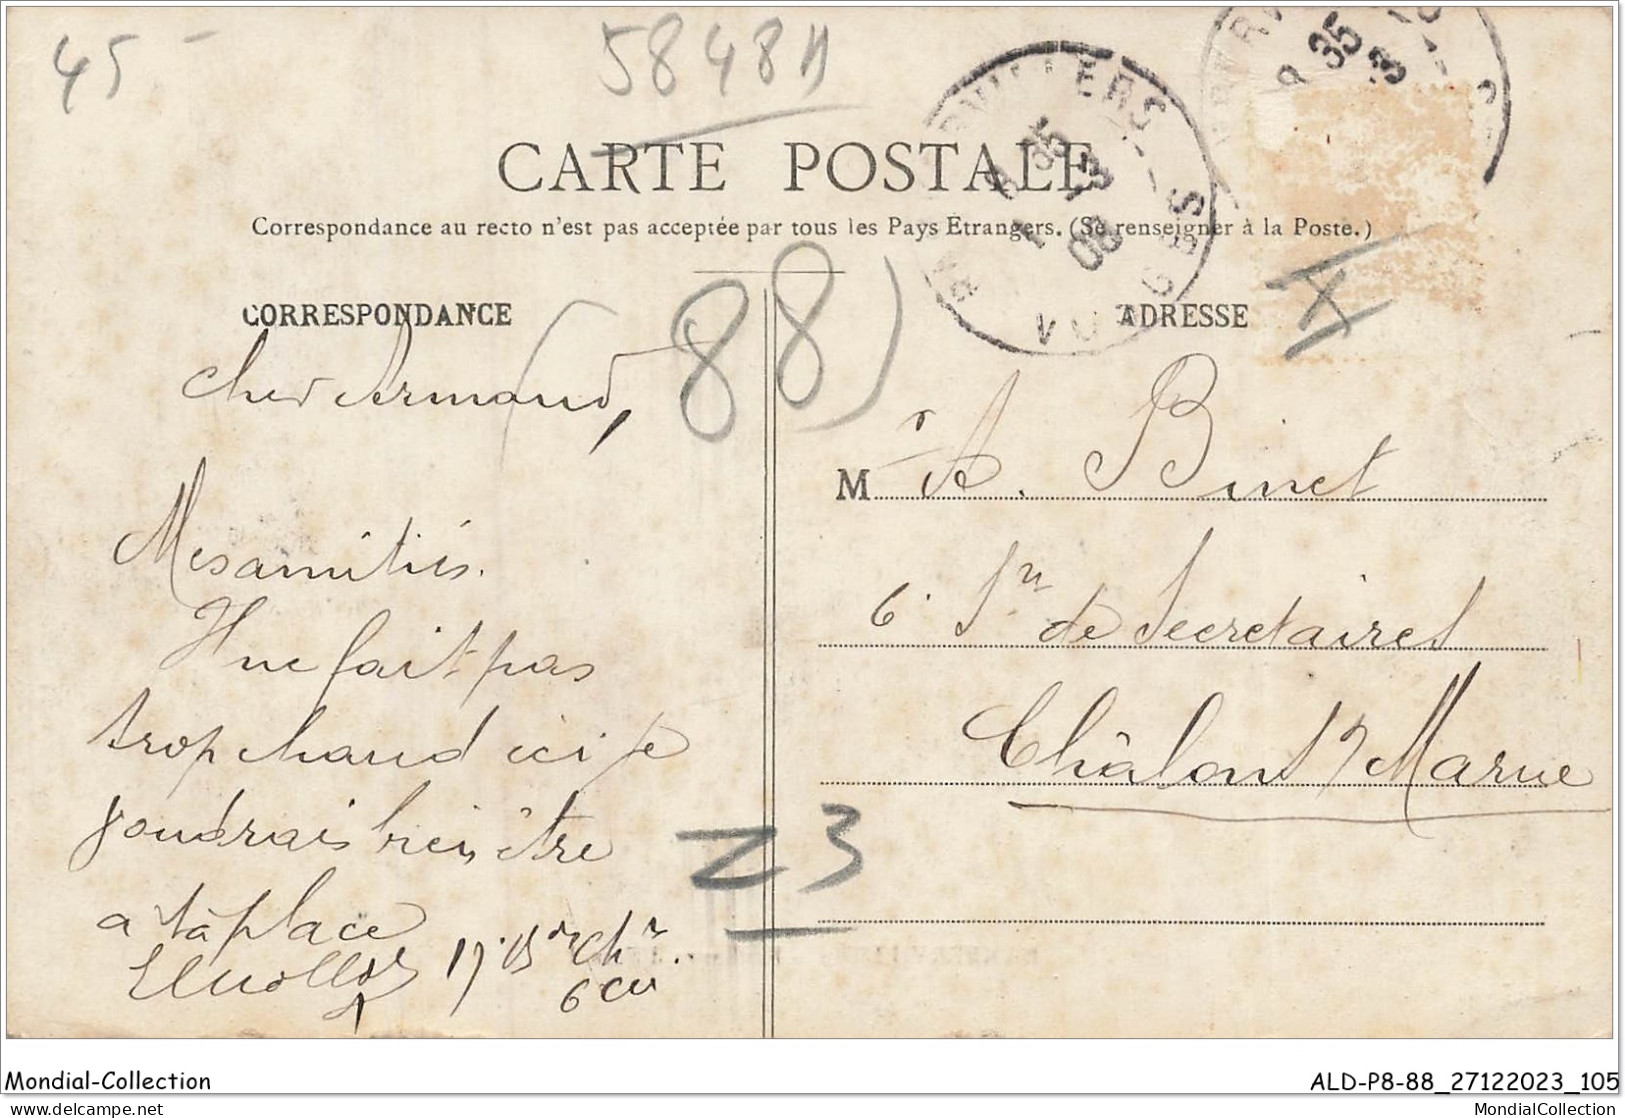 45 -
58481
CARTE POSTALE
Correspondance au recto n'est pas acceptée par tous les Pays Étrangers. (Se renseigner à la Poste.)
CORRESPONDANCE
Cher Armand,
Mes amitiés.
Il ne fait pas
trop chaud ici je
voudrais bien être
a ta place
17e Bon Chr.
6 Cie
(88)
Z3
VILLERS
35
13
08
VOSGES
35
ADRESSE
M r A. Binet
6e Son de Secretaires
Châlons s/ Marne
Mondial-Collection
ALD-P8-88_27122023_105
text
MondialCollection